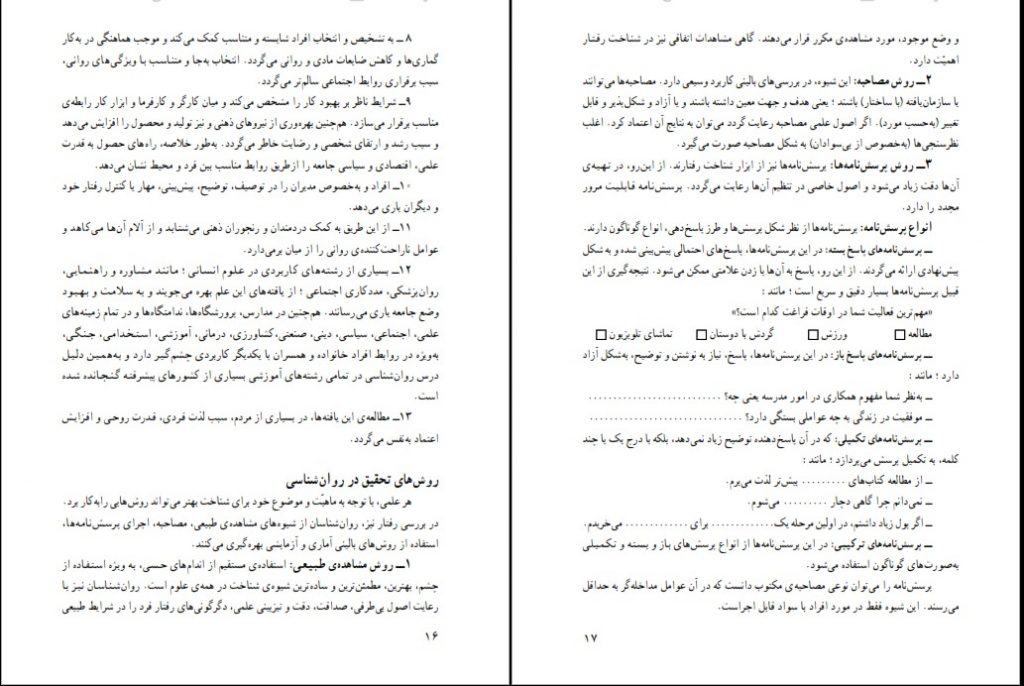 ۸ــ به تشخیص و انتخاب افراد شایسته و متناسب کمک می‌کند و موجب هماهنگی در به‌کار
گماری‌ها و کاهش ضایعات مادی و روانی می‌گردد. انتخاب به‌جا و متناسب با ویژگی‌های روانی،
سبب برقراری روابط اجتماعی سالم‌تر می‌گردد.
۹ــ شرایط ناظر بر بهبود کار را مشخص می‌کند و میان کارگر و کارفرما و ابزار کار رابطه‌ی
مناسب برقرار می‌سازد. هم‌چنین بهره‌وری از نیروهای ذهنی و نیز تولید و محصول را افزایش می‌دهد
و سبب رشد و ارتقای شخصی و رضایت خاطر می‌گردد. به‌طور خلاصه، راه‌های حصول به قدرت
علمی، اقتصادی و سیاسی جامعه را ازطریق روابط مناسب بین فرد و محیط نشان می‌دهد.
۱۰ــ افراد و به‌خصوص مدیران را در توصیف، توضیح، پیش‌بینی، مهار یا کنترل رفتار خود
و دیگران یاری می‌دهد.
۱۱ــ از این طریق به کمک دردمندان و رنجوران ذهنی می‌شتابد و از آلام آن‌ها می‌کاهد و
عوامل ناراحت‌کننده‌ی روانی را از میان برمی‌دارد.
۱۲ــ بسیاری از رشته‌های کاربردی در علوم انسانی ؛ مانند مشاوره و راهنمایی،
روان‌پزشکی، مددکاری اجتماعی ؛ از یافته‌های این علم بهره می‌جویند و به سلامت و بهبود
وضع جامعه یاری می‌رسانند. هم‌چنین در مدارس، پرورشگاه‌ها، ندامتگاه‌ها و در تمام زمینه‌های
علمی، اجتماعی، سیاسی، دینی، صنعتی،کشاورزی، درمانی، آموزشی، استخدامی، جنگی،
به‌ویژه در روابط افراد خانواده و همسران با یکدیگر کاربردی چشم‌گیر دارد و به‌همین دلیل
درس روان‌شناسی در تمامی رشته‌های آموزشی بسیاری از کشورهای پیشرفته گنجانده شده
است.
۱۳ــ مطالعه‌ی این یافته‌ها، در بسیاری از مردم، سبب لذت فردی، قدرت روحی و افزایش
اعتماد به‌نفس می‌گردد.
روش‌های تحقیق در روان‌شناسی
هر علمی، با توجه به ماهیّت و موضوع خود برای شناخت بهتر می‌تواند روش‌هایی رابه‌کار برد.
در بررسی رفتار نیز، روان‌شناسان از شیوه‌های مشاهده‌ی طبیعی، مصاحبه، اجرای پرسش‌نامه‌ها،
استفاده از روش‌های بالینی آماری و آزمایشی بهره‌گیری می‌کنند.
۱ــ روش مشاهده‌ی طبیعی: استفاده‌ی مستقیم از اندام‌های حسی، به ویژه استفاده از
چشم، بهترین، مطمئن‌ترین و ساده‌ترین شیوه‌ی شناخت در همه‌ی علوم است. روان‌شناسان نیز با
رعایت اصول بی‌طرفی، صداقت، دقت و تیزبینی علمی، دگرگونی‌های رفتار فرد را در شرایط طبیعی
۱۶
و وضع موجود، مورد مشاهده‌ی مکرر قرار می‌دهند. گاهی مشاهدات اتفاقی نیز در شناخت رفتار
اهمیّت دارد.
۲ــ روش مصاحبه: این شیوه، در بررسی‌های بالینی کاربرد وسیعی دارد. مصاحبه‌ها می‌توانند
یا سازمان‌یافته (با ساختار) باشند ؛ یعنی هدف و جهت معین داشته باشند و یا آزاد و شکل‌پذیر و قابل
تغییر (به‌حسب مورد). اگر اصول علمی مصاحبه رعایت گردد می‌توان به نتایج آن اعتماد کرد. اغلب
نظرسنجی‌ها (به‌خصوص از بی‌سوادان) به شکل مصاحبه صورت می‌گیرد.
۳ــ روش پرسش‌نامه‌ها: پرسش‌نامه‌ها نیز از ابزار شناخت رفتارند. از این‌رو، در تهیه‌ی
آن‌ها دقت زیاد می‌شود و اصول خاصی در تنظیم آن‌ها رعایت می‌گردد. پرسش‌نامه قابلیت مرور
مجدد را دارد.
انواع پرسش‌نامه: پرسش‌نامه‌ها از نظر شکل پرسش‌ها و طرز پاسخ‌دهی، انواع گوناگون دارند.
ــ پرسش‌نامه‌های پاسخ بسته: در این پرسش‌نامه‌ها، پاسخ‌های احتمالی پیش‌بینی شده و به‌شکل
پیش‌نهادی ارائه می‌گردند. از این رو، پاسخ به آن‌ها با زدن علامتی ممکن می‌شود. نتیجه‌گیری از این
قبیل پرسش‌نامه‌ها بسیار دقیق و سریع است ؛ مانند :
«مهم‌ترین فعالیت شما در اوقات فراغت کدام است؟»
مطالعه □ ورزش □ گردش با دوستان □ تماشای تلویزیون □
ــ پرسش‌نامه‌های پاسخ باز: در این پرسش‌نامه‌ها، پاسخ، نیاز به نوشتن و توضیح، به‌شکل آزاد
دارد ؛ مانند :
ــ به‌نظر شما مفهوم همکاری در امور مدرسه یعنی چه؟ ..........................
ــ موفقیت در زندگی به چه عواملی بستگی دارد؟ ..............................
ــ پرسش‌نامه‌های تکمیلی: که در آن پاسخ‌دهنده توضیح زیاد نمی‌دهد، بلکه با درج یک یا چند
کلمه، به تکمیل پرسش می‌پردازد ؛ مانند :
ــ از مطالعه کتاب‌های ......... بیش‌تر لذت می‌برم.
ــ نمی‌دانم چرا گاهی دچار ......... می‌شوم.
ــ اگر پول زیاد داشتم، در اولین مرحله یک............ برای ............. می‌خریدم.
ــ پرسش‌نامه‌های ترکیبی: در این پرسش‌نامه‌ها از انواع پرسش‌های باز و بسته و تکمیلی
به‌صورت‌های گوناگون استفاده می‌شود.
پرسش‌نامه را می‌توان نوعی مصاحبه‌ی مکتوب دانست که در آن عوامل مداخله‌گر به حداقل
می‌رسند. این شیوه فقط در مورد افراد با سواد قابل اجراست.
۱۷